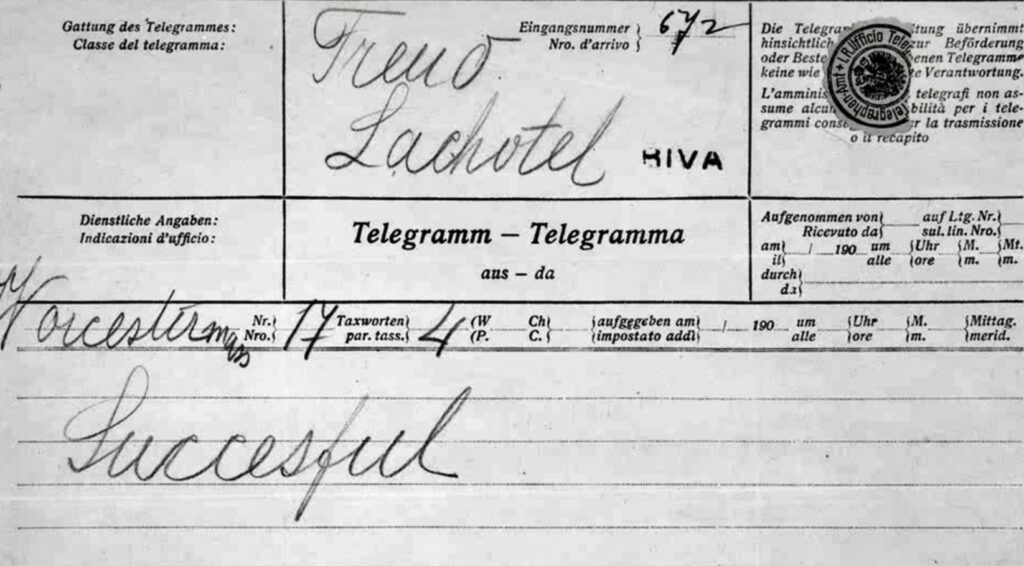 Gattung des Telegrammes:
Classe del telegramma:
Freud
Lachotel
RIVA
Eingangsnummer } 672
Nro. d'arrivo }
Die Telegra tung übernimmt
hinsichtlich zur Beförderung
oder Beste enen Telegramme
keine wie te Verantwortung.
L'amminis telegrafi non as-
sume alcun bilità per i tele-
grammi conse r la trasmissione
o il recapito
I.R. Ufficio Teleg
Telegraphen-Amt
Dienstliche Angaben:
Indicazioni d'ufficio:
Telegramm – Telegramma
aus – da
Aufgenommen von } auf Ltg. Nr. }
Ricevuto da } sul. lin. Nro. }
am } / 190 um { Uhr { M. { Mt.
il } alle { ore { m. { m.
durch }
da }
Worcester mass Nr. } 17 Taxworten } 4 (W Ch { aufgegeben am } / 190 um { Uhr { M. { Mittag.
Nro. } par. tass. } (P. C. { impostato addì } alle { ore { m. { merid.
Succesful